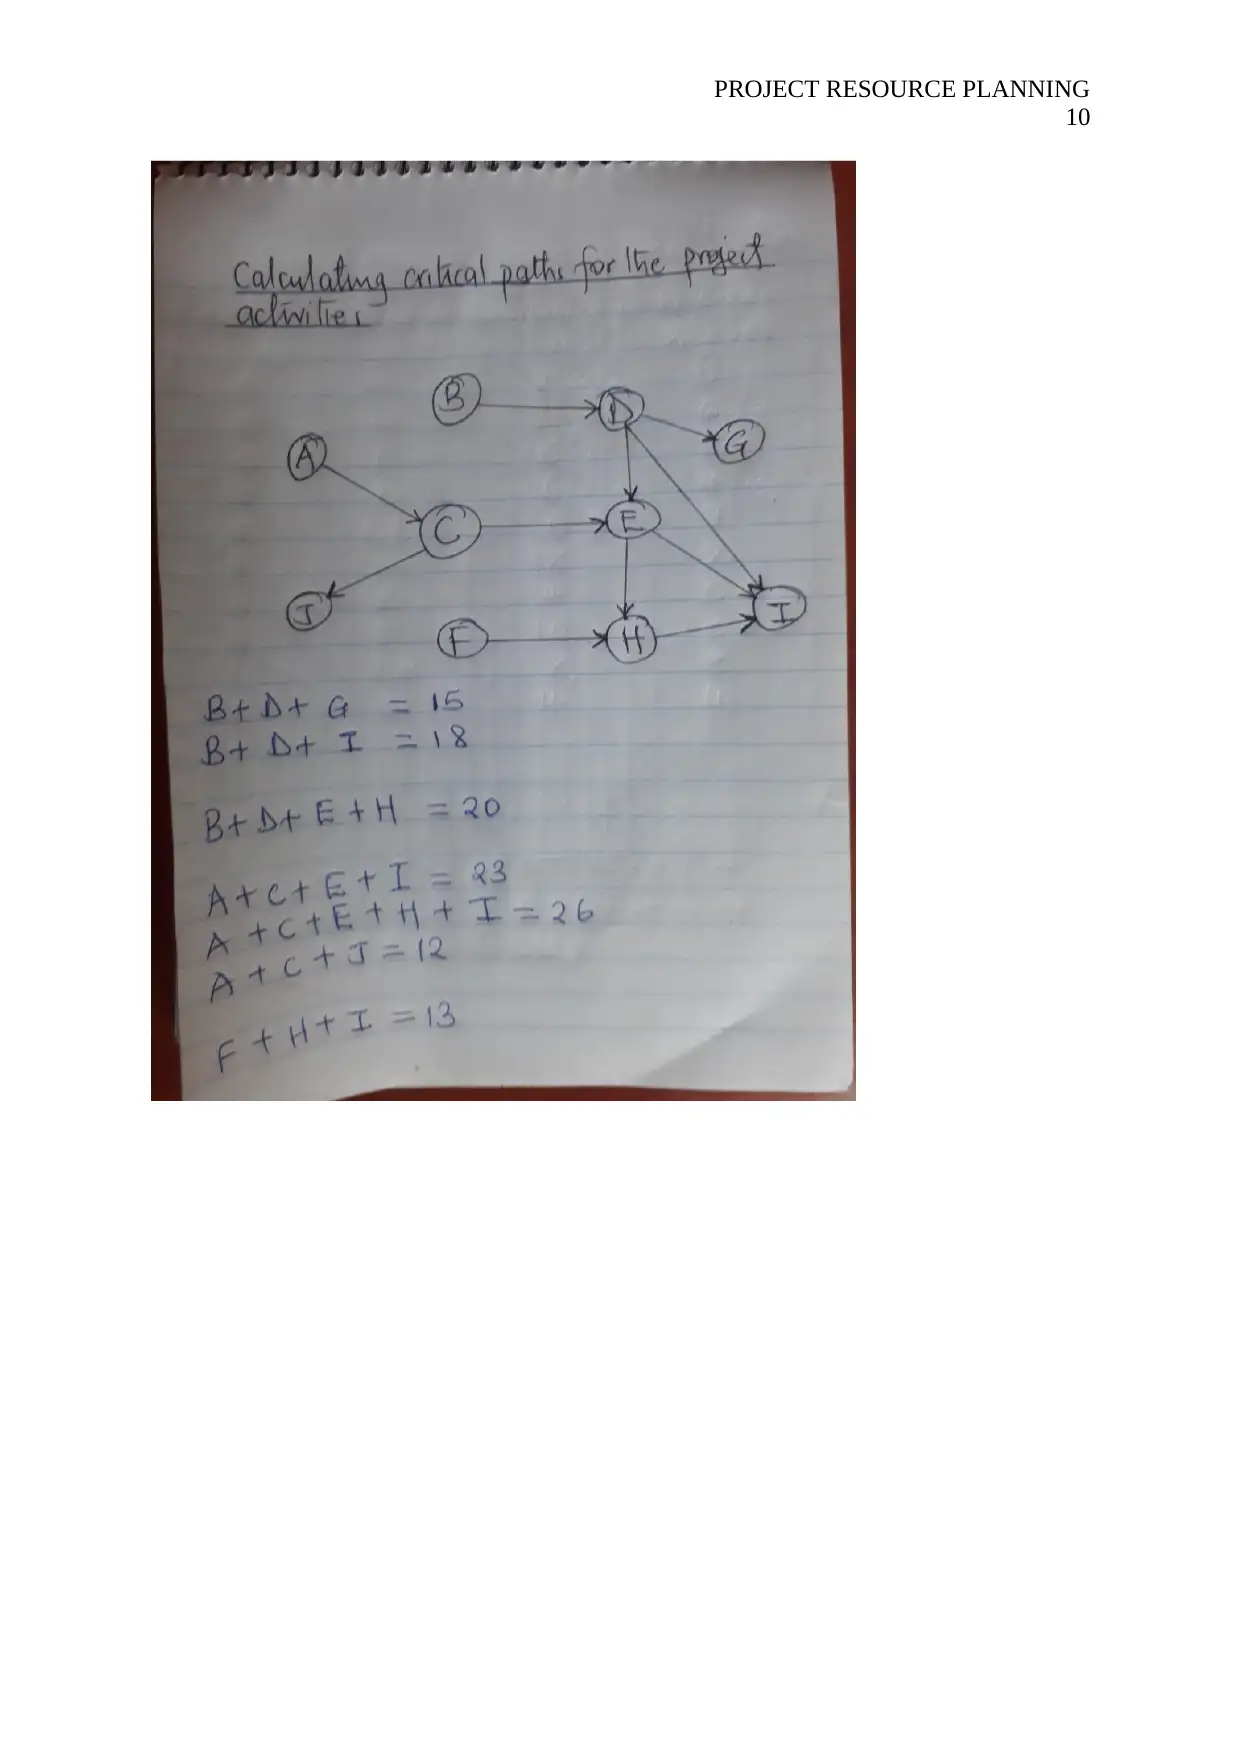 PROJECT RESOURCE PLANNING
10
Calculating critical paths for the project
activities
B
D
G
A
C
E
J
F
H
I
B+D+ G = 15
B+ D+ I = 18
B+D+ E + H = 20
A+C+E+I = 23
A +C+E + H + I = 26
A + C + J = 12
F + H + I = 13